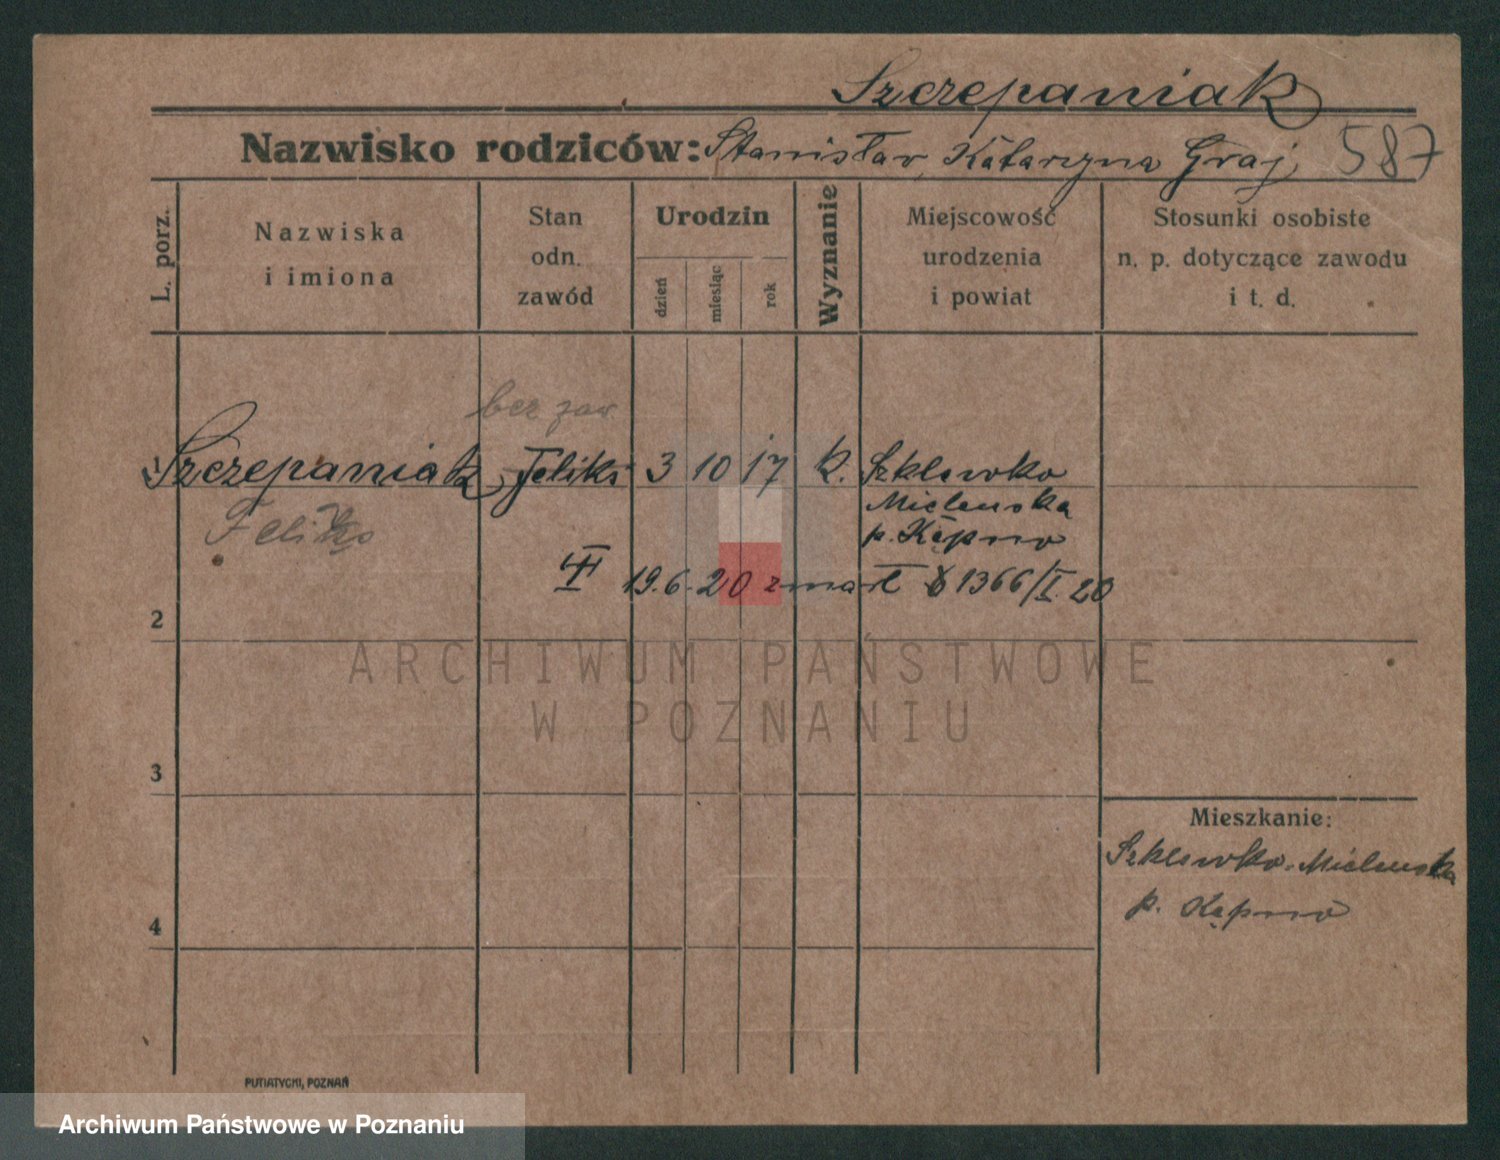 Szczepaniak
Nazwisko rodziców: Stanisław, Katarzyna Graj 587
L. porz.
Nazwiska
i imiona
Stan
odn.
zawód
Urodzin
dzień
miesiąc
rok
Wyznanie
Miejscowość
urodzenia
i powiat
Stosunki osobiste
n. p. dotyczące zawodu
i t. d.
bez zaw.
1 Szczepaniak, Feliks 3 10 17 k. Szklewko
Mielenska
p. Kępno
Feliks
19.6.20 zmarł 1366/I.20
2
ARCHIWUM PAŃSTWOWE
W POZNANIU
3
Mieszkanie:
Szklewko-Mielenska
p. Kępno
4
PUTIATYCKI, POZNAŃ
Archiwum Państwowe w Poznaniu